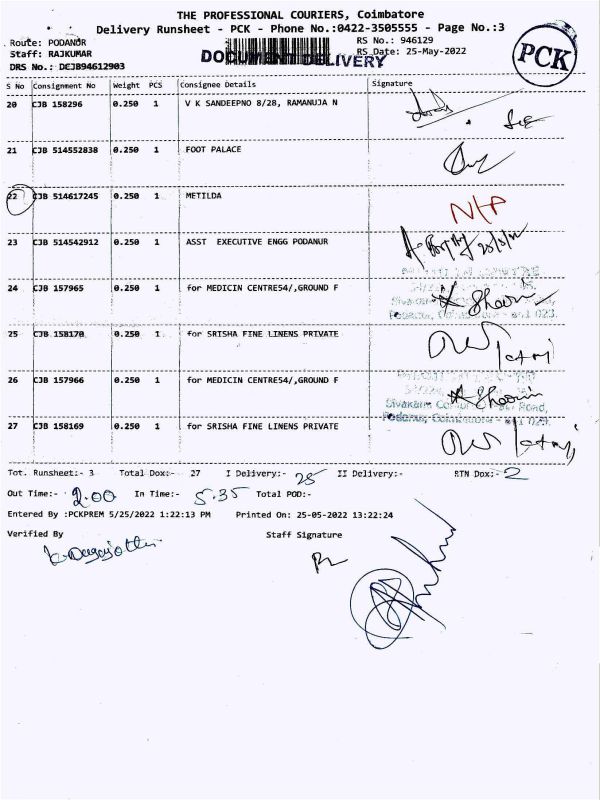 THE PROFESSIONAL COURIERS, Coimbatore
Delivery Runsheet - PCK - Phone No.:0422-3505555 - Page No.:3
Route: PODANUR
RS No.: 946129
Staff: RAJKUMAR
RS Date: 25-May-2022
DOCUMENT DELIVERY
PCK
DRS No.: DCJB94612903
S No Consignment No Weight PCS Consignee Details Signature
20 CJB 158296 0.250 1 V K SANDEEPNO 8/28, RAMANUJA N
21 CJB 514552838 0.250 1 FOOT PALACE
22 CJB 514617245 0.250 1 METILDA N/P
23 CJB 514542912 0.250 1 ASST EXECUTIVE ENGG PODANUR
24 CJB 157965 0.250 1 for MEDICIN CENTRE54/,GROUND F
25 CJB 158170 0.250 1 for SRISHA FINE LINENS PRIVATE
26 CJB 157966 0.250 1 for MEDICIN CENTRE54/,GROUND F
27 CJB 158169 0.250 1 for SRISHA FINE LINENS PRIVATE
Tot. Runsheet:- 3 Total Dox:- 27 I Delivery:- 25 II Delivery:- RTN Dox:- 2
Out Time:- 2.00 In Time:- 5.35 Total POD:-
Entered By :PCKPREM 5/25/2022 1:22:13 PM Printed On: 25-05-2022 13:22:24
Verified By Staff Signature